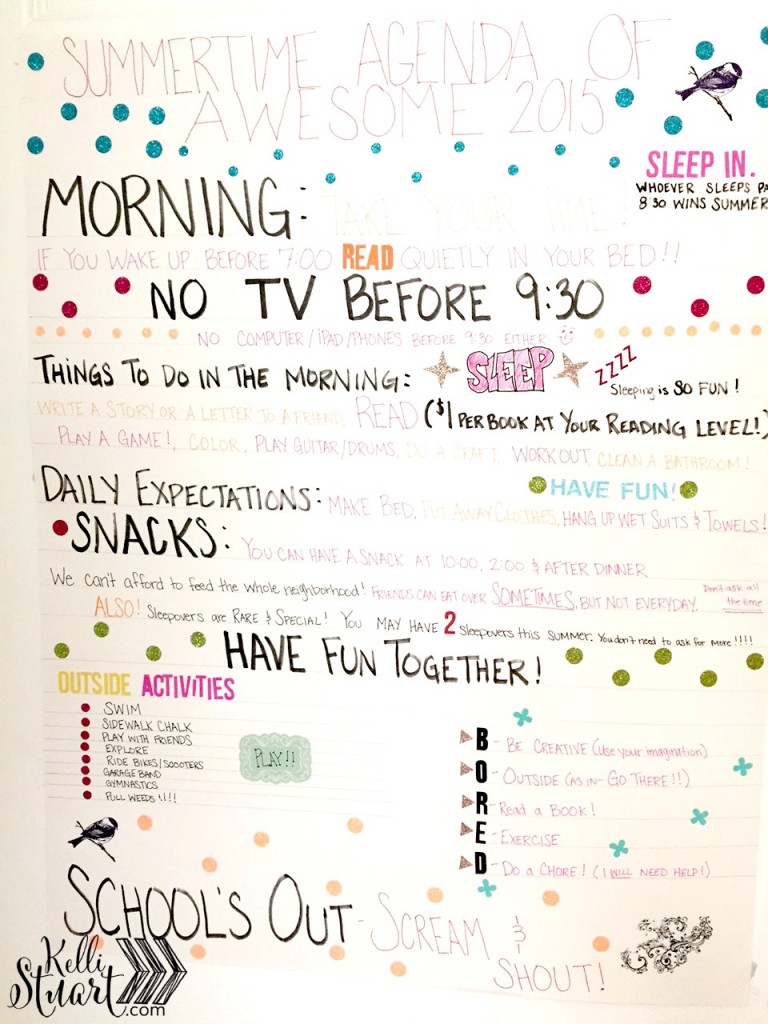 SUMMERTIME AGENDA OF
AWESOME 2015
SLEEP IN.
WHOEVER SLEEPS PA
8:30 WINS SUMMER
MORNING: TAKE YOUR TIME!
IF YOU WAKE UP BEFORE 7:00 READ QUIETLY IN YOUR BED!!
NO TV BEFORE 9:30
NO COMPUTER/IPAD/PHONES BEFORE 9:30 EITHER
THINGS TO DO IN THE MORNING: SLEEP ZZZZ
Sleeping is SO FUN!
WRITE A STORY OR A LETTER TO A FRIEND, READ ($1 PER BOOK AT YOUR READING LEVEL!)
PLAY A GAME!, COLOR, PLAY GUITAR/DRUMS, DO A CRAFT, WORKOUT, CLEAN A BATHROOM!
HAVE FUN!
DAILY EXPECTATIONS: MAKE BED, PUT AWAY CLOTHES, HANG UP WET SUITS & TOWELS!
SNACKS: YOU CAN HAVE A SNACK AT 10:00, 2:00 & AFTER DINNER
We can't afford to feed the whole neighborhood! FRIENDS CAN EAT OVER SOMETIMES, BUT NOT EVERYDAY. Don't ask all the time
ALSO! Sleepovers are RARE & SPECIAL! YOU MAY HAVE 2 Sleepovers this SUMMER. You don't need to ask for more!!!!
HAVE FUN TOGETHER!
OUTSIDE ACTIVITIES
SWIM
SIDEWALK CHALK
PLAY WITH FRIENDS
EXPLORE
RIDE BIKES/SCOOTERS
GARAGE BAND
GYMNASTICS
PULL WEEDS!!!!
PLAY!!
B - BE CREATIVE (use your imagination)
O - OUTSIDE (AS IN- GO THERE!!)
R - Read a Book!
E - EXERCISE
D - DO A CHORE! (I WILL NEED HELP!)
SCHOOL'S OUT - SCREAM & SHOUT!
Kelli
Stuart
.com